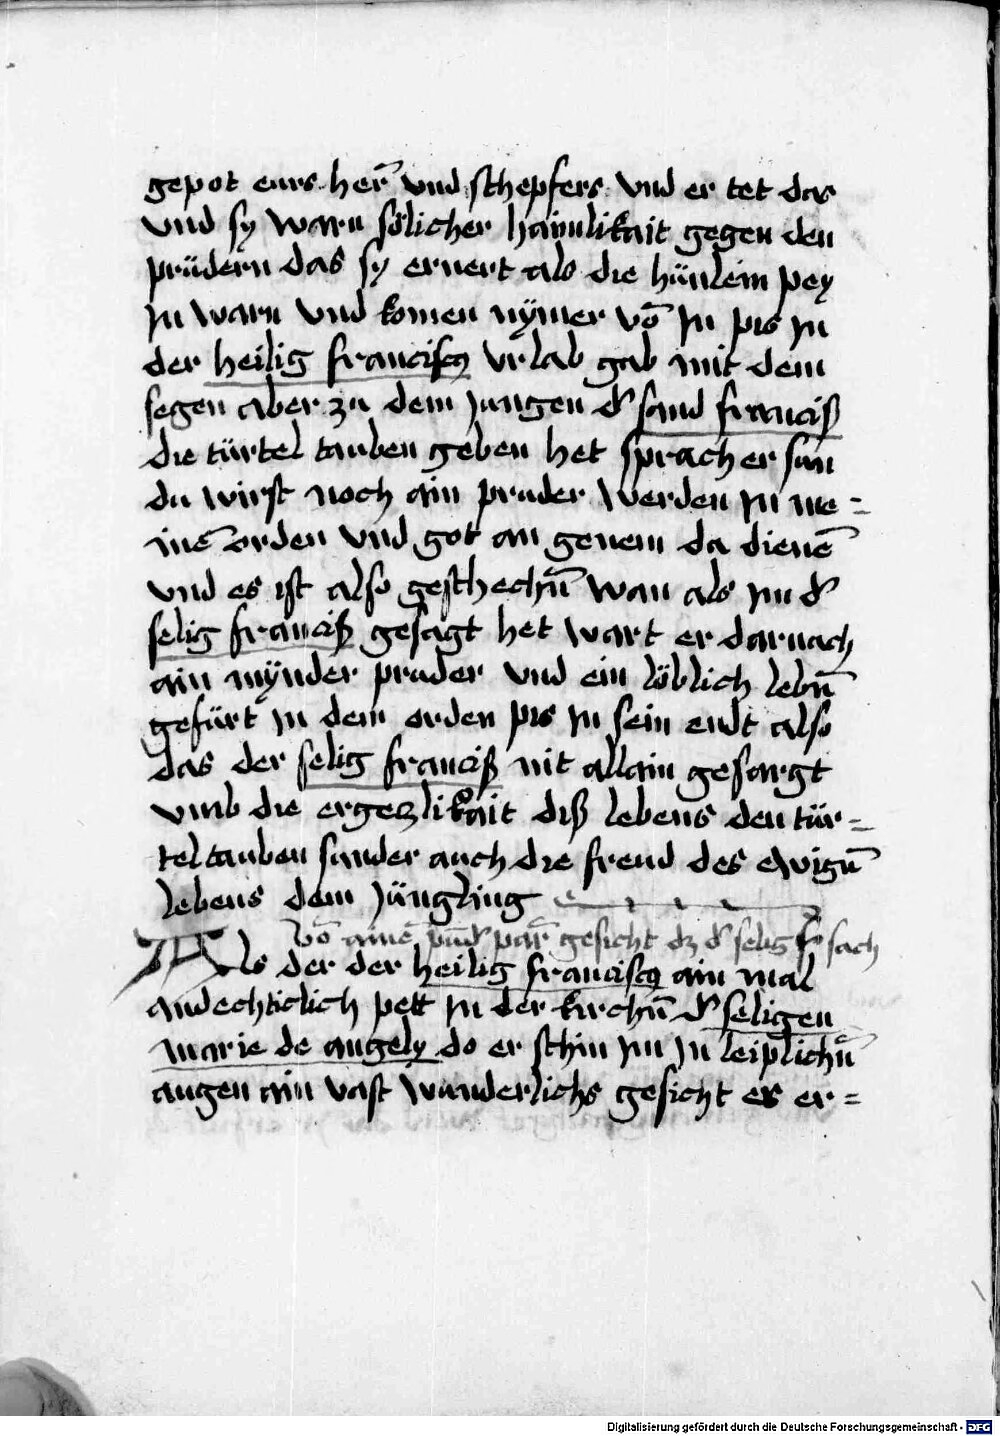 gepot eurs her̄ vnd schepfers vnd er tet das
vnd sy warn sölicher haimlikait gegen den
prüdern das sy ernert als die hünlein pey
jn warn vnd komen nÿmer vō jn pis jn
der heilig franciscꝰ vrlab gab mit dem
segen aber zu dem jungen dʼ sand francisß
die türtel tauben geben het sprach er sun
du wirst noch ain pruder werden jn me=
inē orden vnd got an genem da dienē
vnd es ist also geschechn̄ wan als jm dʼ
selig francisß gesagt het wart er darnach
ain mÿnder pruder vnd ein löblich lebn̄
gefürt jn dem orden pis jn sein endt also
das der selig francisß nit allain gesargt
vmb die ergeczlikait diß lebens den tür=
teltauben sunder auch die freud des ewign̄
lebens dem jüngling
vō ainē par̄ gesicht dz dʼ selig fr̄ sach
Als der der heilig franciscꝰ ain mal
andechticlich pett jn der kirchn̄ dʼ seligen
marie de angely do er schin jm jn leiplichn̄
augen ain vast wunderlichs gesicht es er=
Digitalisierung gefördert durch die Deutsche Forschungsgemeinschaft - DFG